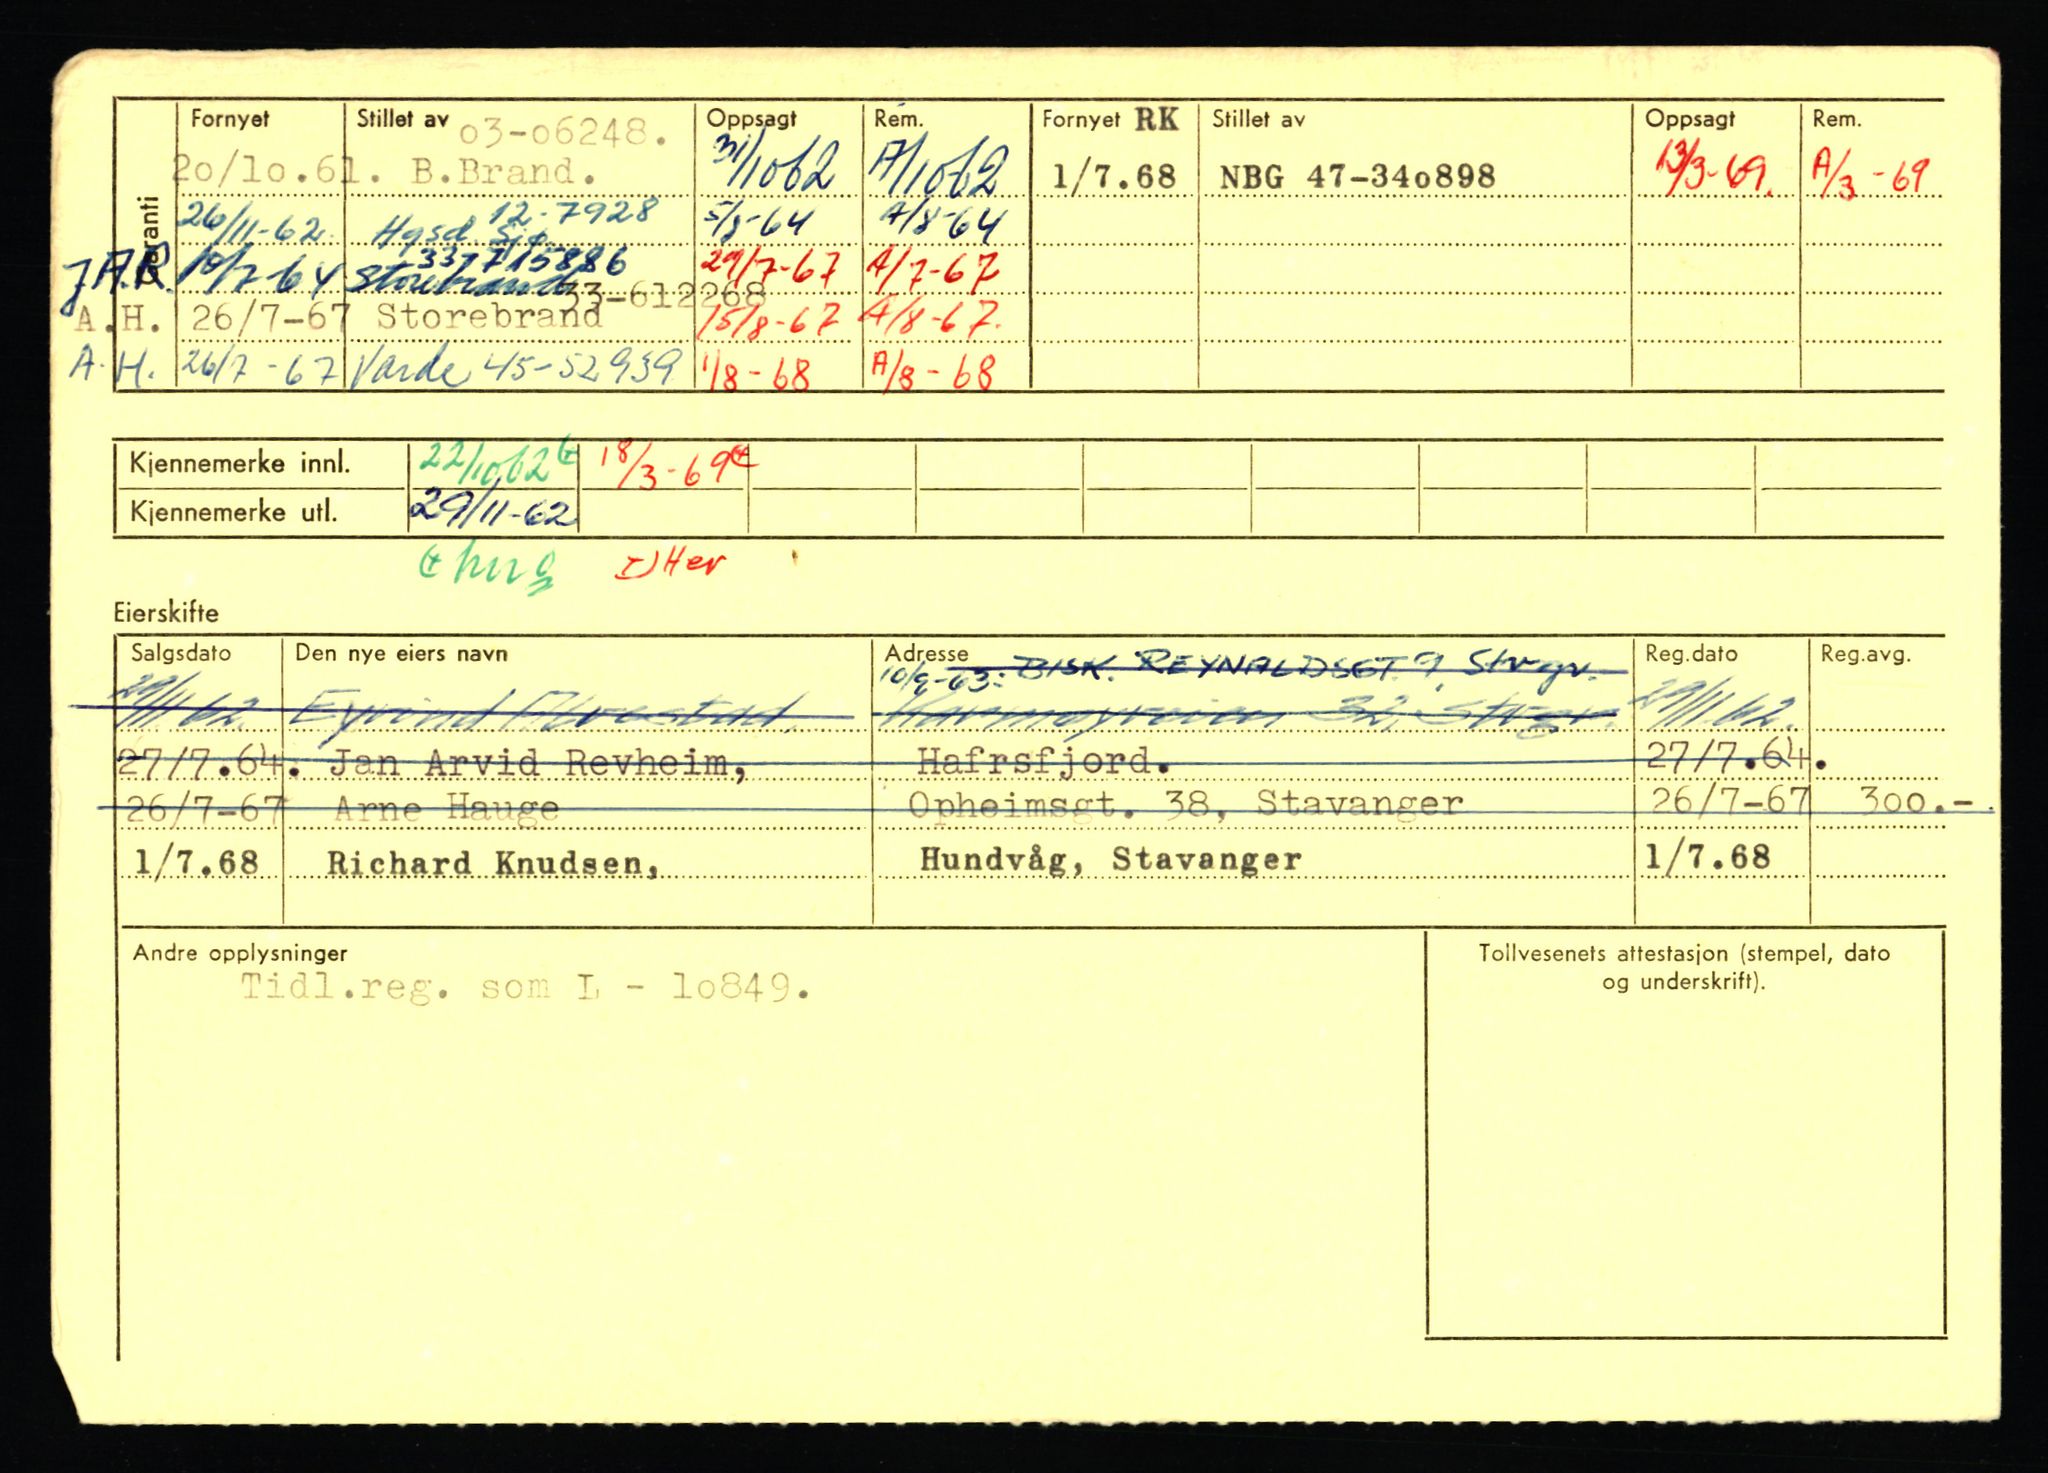 Garanti
Fornyet Stillet av Oppsagt Rem. Fornyet RK Stillet av Oppsagt Rem.
o3-o6248.
2o/lo.61. B.Brand. 31/1062 A/1062 1/7.68 NBG 47-34o898 13/3-69. A/3-69
26/11-62 Hgsd Sjø 12-7928 5/8-64 A/8-64
J.A.R. 10/7-64 Storebrand 337715886 29/7-67 A/7-67
33-612268
A.H. 26/7-67 Storebrand 15/8-67 A/8-67.
A.H. 26/7-67 Varde 45-52939 1/8-68 A/8-68
Kjennemerke innl. 22/1062 18/3-69
Kjennemerke utl. 29/11-62
Her
Eierskifte
Salgsdato Den nye eiers navn Adresse Reg.dato Reg.avg.
10/9-63: BISK. REYNALDSGT. 9, Stvgr.
29/11 62. Eyvind Alvestad, Karmøyveien 32, Stvgr. 29/11 62.
27/7.64. Jan Arvid Revheim, Hafrsfjord. 27/7.64.
26/7-67 Arne Hauge Opheimsgt. 38, Stavanger 26/7-67 300.-
1/7.68 Richard Knudsen, Hundvåg, Stavanger 1/7.68
Andre opplysninger
Tidl.reg. som L - lo849.
Tollvesenets attestasjon (stempel, dato
og underskrift).